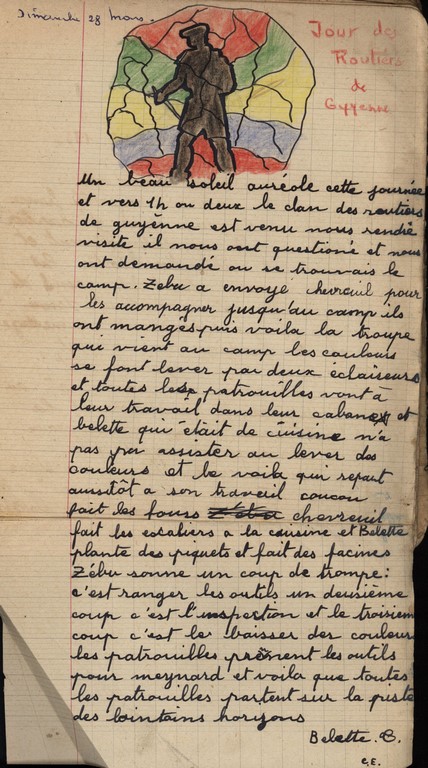 Dimanche 28 mars.
Jour des
Routiers
de
Guyenne
Un beau soleil auréole cette journée
et vers 1h ou deux le clan des routiers
de guyènne est venu nous rendre
visite il nous ont questioné et nous
ont demandé ou se trouvais le
camp. Zebu a envoyé chevreuil pour
les accompagner jusqu'au camp ils
ont mangés puis voila la troupe
qui vient au camp les couleurs
se font lever par deux éclaiseurs
et toutes les patrouilles vont à
leur travail dans leur cabanes et
belette qui était de cuisine n'a
pas pu assister au lever des
couleurs et le voila qui repart
aussitôt a son travail coucou
fait les fours Zébu chevreuil
fait les escaliers a la cuisine et Belette
plante des piquets et fait des facines
Zébu sonne un coup de trompe:
c'est ranger les outils un deusième
coup c'est l'inspection et le troisiem
coup c'est le baisser des couleurs
les patrouilles prènnent les outils
pour meynard et voila que toutes
les patrouilles partent sur la piste
des lointains horizons
Belette. C.
C.E.